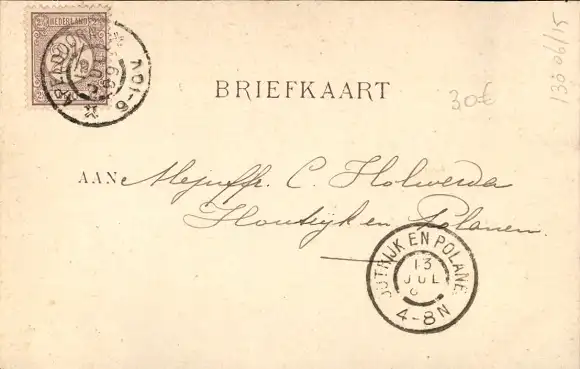 NEDERLAND
APELDOORN
JUL
99
6-10V
BRIEFKAART
30€
130 06/15
AAN Mejuffr. C. Holwerda
Houtrijk en Polanen.
OUTRIJK EN POLANE
13
JUL
4-8N